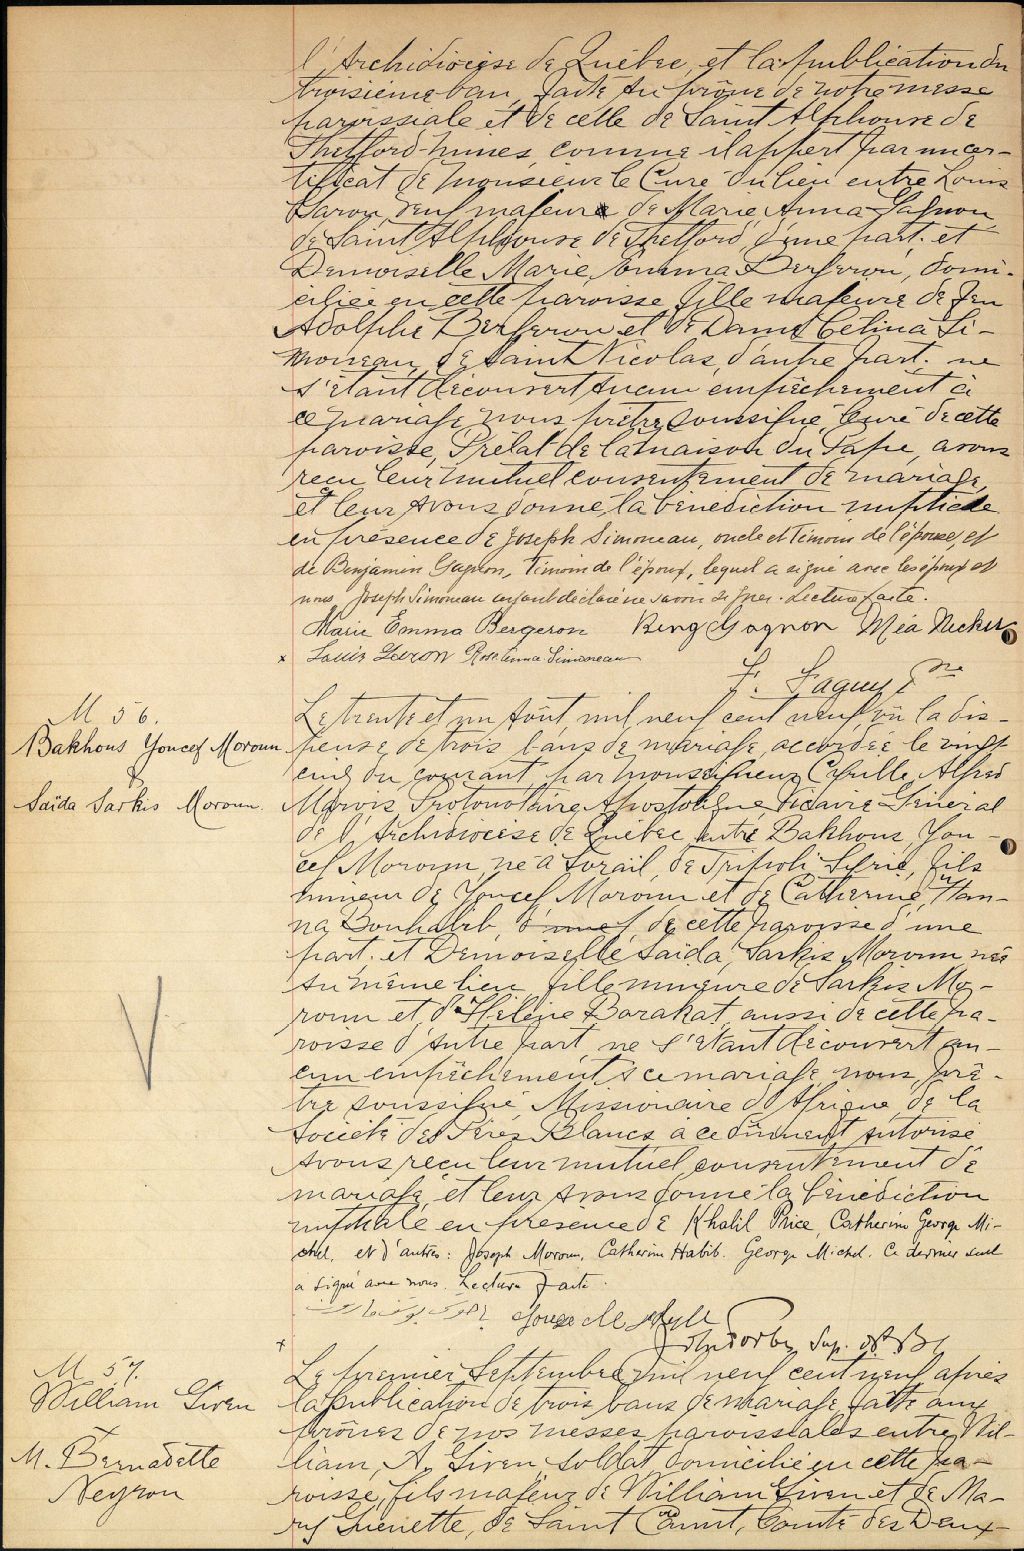 l'Archidiocèse de Québec, et la publication du
troisième ban, faite au prône de notre messe
paroissiale et de celle de Saint Alphonse de
Thetford-mines, comme il appert par un cer-
tificat de monsieur le Curé du lieu entre Louis
veuf majeur de Marie, Anna Gagnon,
de Saint Alphonse de Thetford, d'une part, et
Demoiselle Marie, Emma Bergeron, domi-
ciliée en cette paroisse, fille majeure de feu
Adolphe Bergeron et de Dame Célina Si-
moneau, de Saint Nicolas, d'autre part; ne
s'étant découvert aucun empêchement à
ce mariage, nous, prêtre soussigné, Curé de cette
paroisse, Prélat de la maison du Pape, avons
reçu leur mutuel consentement de mariage,
et leur avons donné la bénédiction nuptiale
en présence de Joseph Simoneau, oncle et Témoin de l'épouse, et
de Benjamin Gagnon, Témoin de l'époux, lequel a signé avec les époux et
nous, Joseph Simoneau ayant déclaré ne savoir signer. Lecture faite.
Marie Emma Bergeron Benj Gagnon
Louis Rose Anna Simoneau
F. Faguy
M 56.
Bakhous Youcef Moroun
&
Saïda Sarkis Moroun.
Le trente et un Août, mil neuf cent neuf vu la dis-
pense de trois bans de mariage accordée le vingt
cinq du courant par Monseigneur Cyrille, Alfred
Marois, Protonotaire Apostolique, Vicaire Général
de l'Archidiocèse de Québec, entre Bakhous, You-
cef Moroun, né à de Tripoli Syrie, fils
mineur de Youcef Moroun et de Catherine, Han-
na Bouhabib, de cette paroisse d'une
part; et Demoiselle Saïda, Sarkis Moroun née
au même lieu, fille mineure de Sarkis Mo-
roun et d'Hélène Barakat, aussi de cette pa-
roisse d'autre part ne s'étant découvert au-
cun empêchement à ce mariage, nous, prê-
tre soussigné, Missionaire d'Afrique, de la
Société des Pères Blancs, à ce dûment autorisé
avons reçu leur mutuel consentement de
mariage, et leur avons donné la bénédiction
nuptiale en présence de Khalil Price, Catherine George Mi-
chel, et d'autres: Joseph Moroun, Catherine Habib. George Michel. Ce dernier seul
a signé avec nous. Lecture faite.
Sup.
M 57.
William Given
&
M. Bernadette
Neyron
Le premier Septembre, mil neuf cent neuf après
la publication de trois bans de mariage, faite aux
prônes de nos messes paroissiales entre Wil-
liam, A. Given soldat, domicilié en cette pa-
roisse, fils majeur de William Given et de Ma-
ry de Saint Comté des Deux-